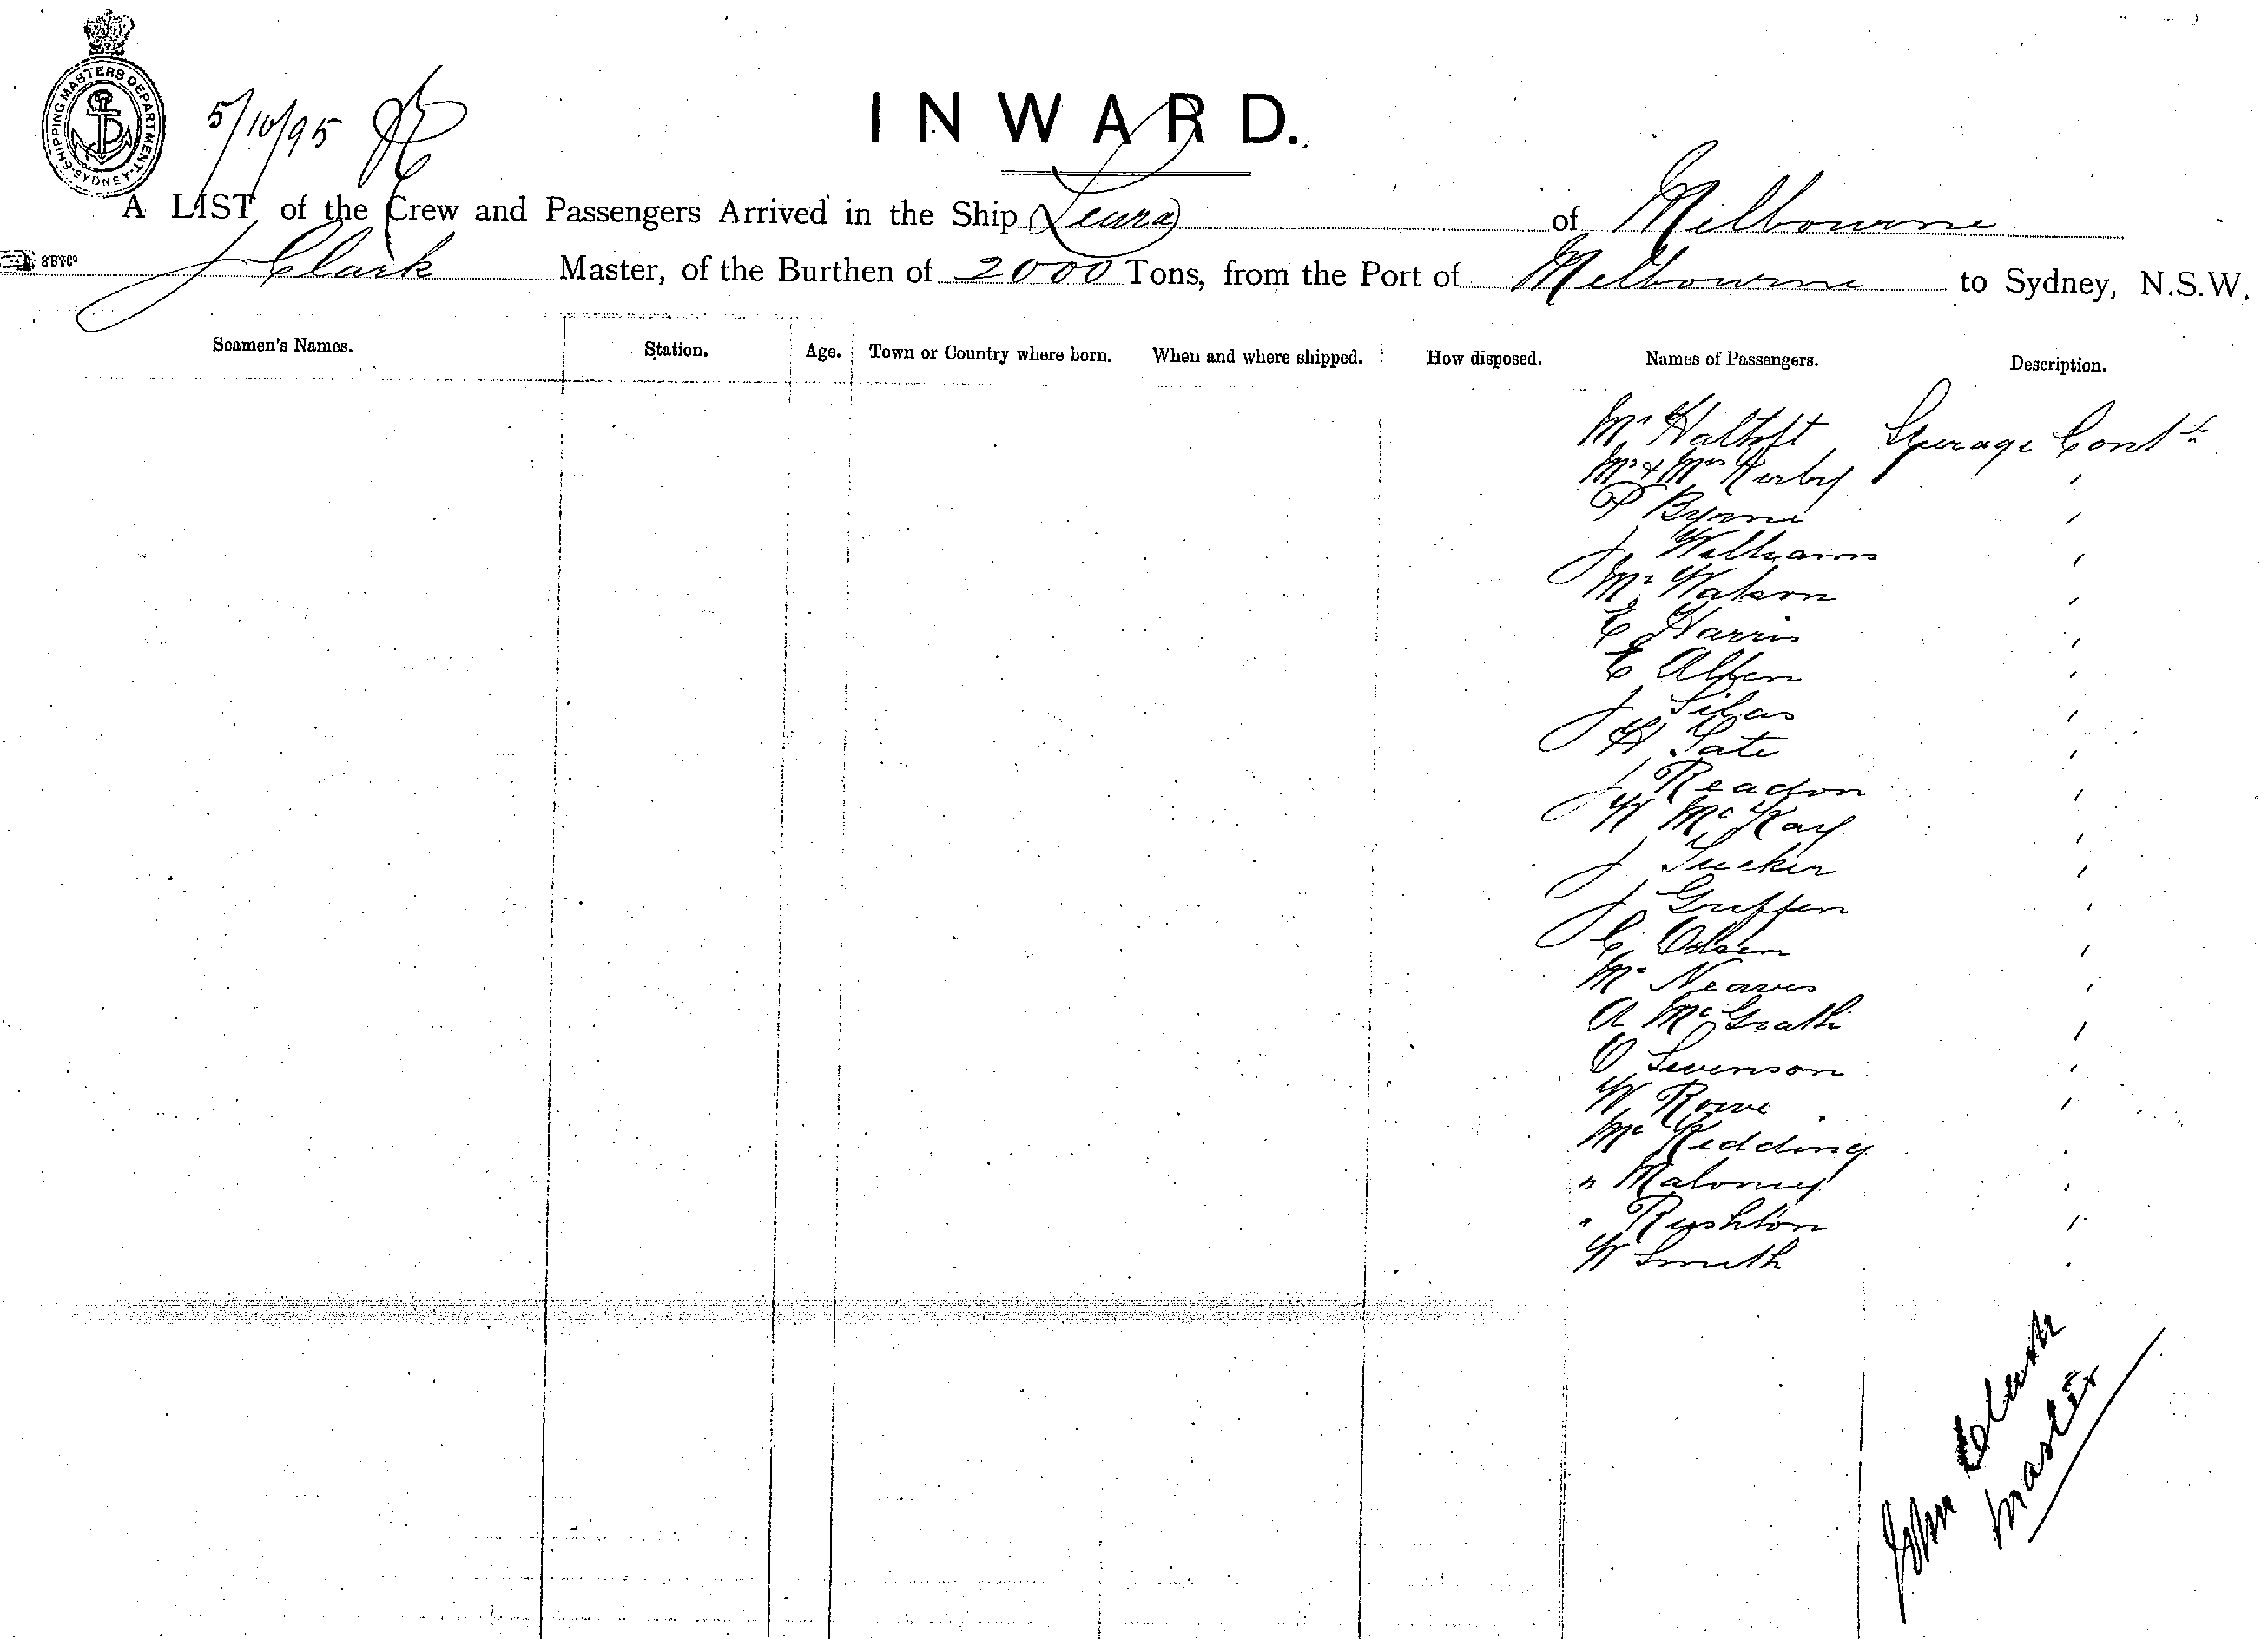 SHIPPING MASTERS DEPARTMENT SYDNEY
5/10/95
INWARD.
A LIST of the Crew and Passengers Arrived in the Ship Leura of Melbourne
J Clark Master, of the Burthen of 2000 Tons, from the Port of Melbourne to Sydney, N.S.W.
Seamen's Names. Station. Age. Town or Country where born. When and where shipped. How disposed. Names of Passengers. Description.
Mr Haltoft Steerage Contd
Mr & Mrs Kirby "
P Byrne "
J Williams "
Mr Watson "
E Harris "
E Alfen "
J Silas "
H Tate "
J Readon "
W McKay "
J Tucker "
J Griffen "
C Olsen "
Mr Neaves "
A McGrath "
O Swenson "
W Rowe "
Mr Redding "
" Maloney "
" Rushton "
W Smith "
John Clark
Master